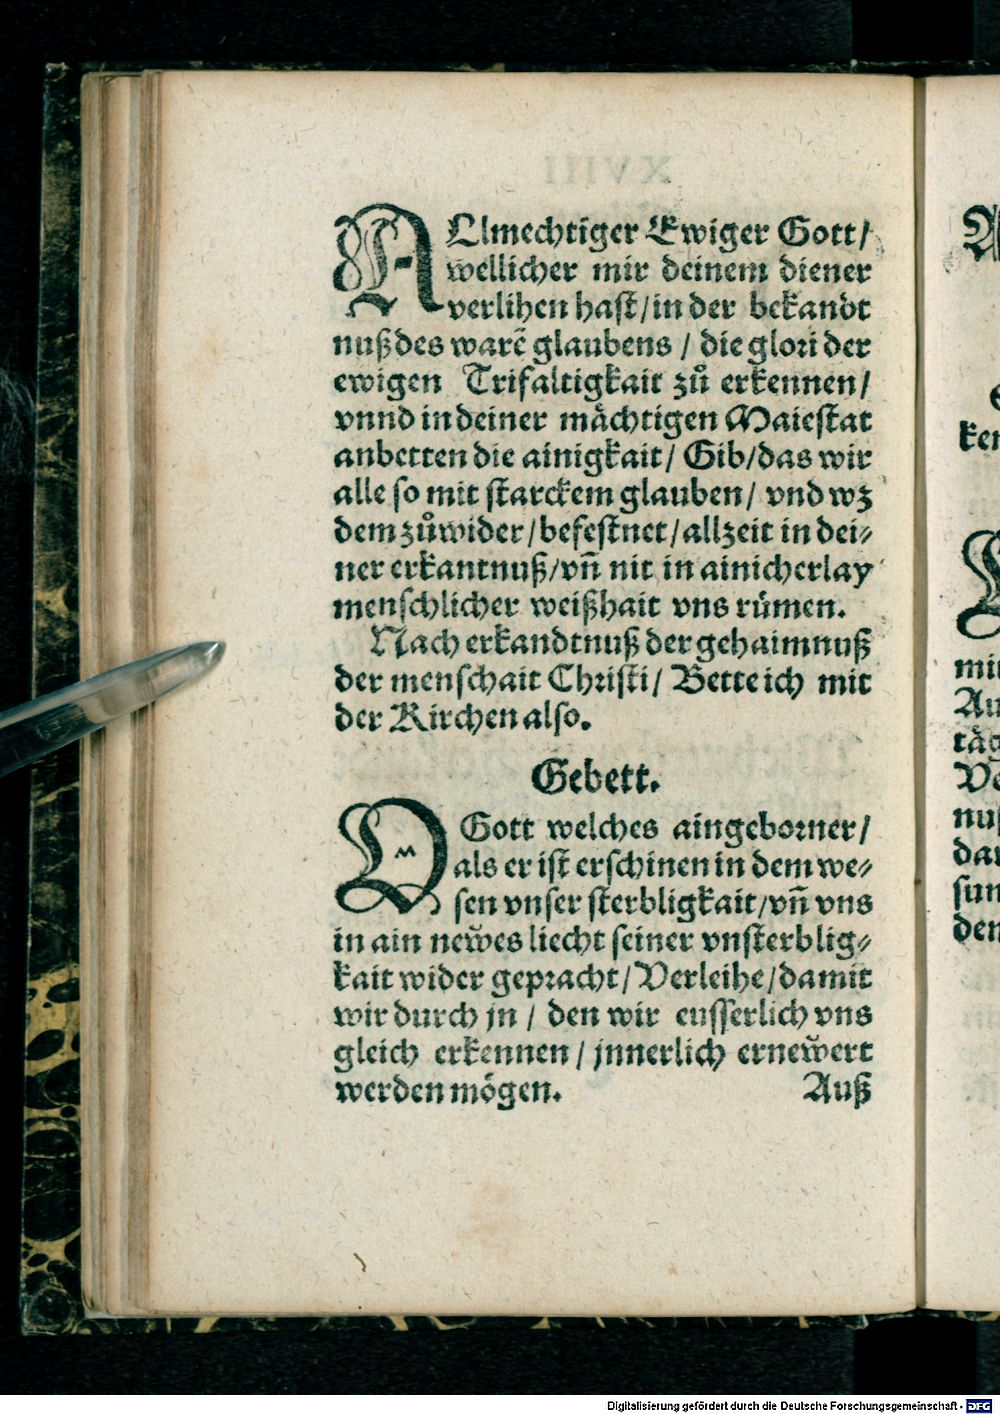 ALlmechtiger Ewiger Gott/
wellicher mir deinem diener
verlihen hast/in der bekandt
nuß des warē glaubens / die glori der
ewigen Trifaltigkait zů erkennen/
vnnd in deiner mächtigen Maiestat
anbetten die ainigkait/ Gib/das wir
alle so mit starckem glauben/ vnd wz
dem zůwider/befestnet/allzeit in dei⸗
ner erkantnuß/vñ nit in ainicherlay
menschlicher weißhait vns rümen.
Nach erkandtnuß der gehaimnuß
der menschait Christi/ Bette ich mit
der Kirchen also.
Gebett.
O Gott welches aingeborner/
als er ist erschinen in dem we⸗
sen vnser sterbligkait/vñ vns
in ain newes liecht seiner vnsterblig⸗
kait wider gepracht/Verleihe/damit
wir durch jn / den wir eusserlich vns
gleich erkennen / jnnerlich ernewert
werden mögen. Auß
ken
mit
Au
täg
nuß
dar
sun
den
Digitalisierung gefördert durch die Deutsche Forschungsgemeinschaft - DFG